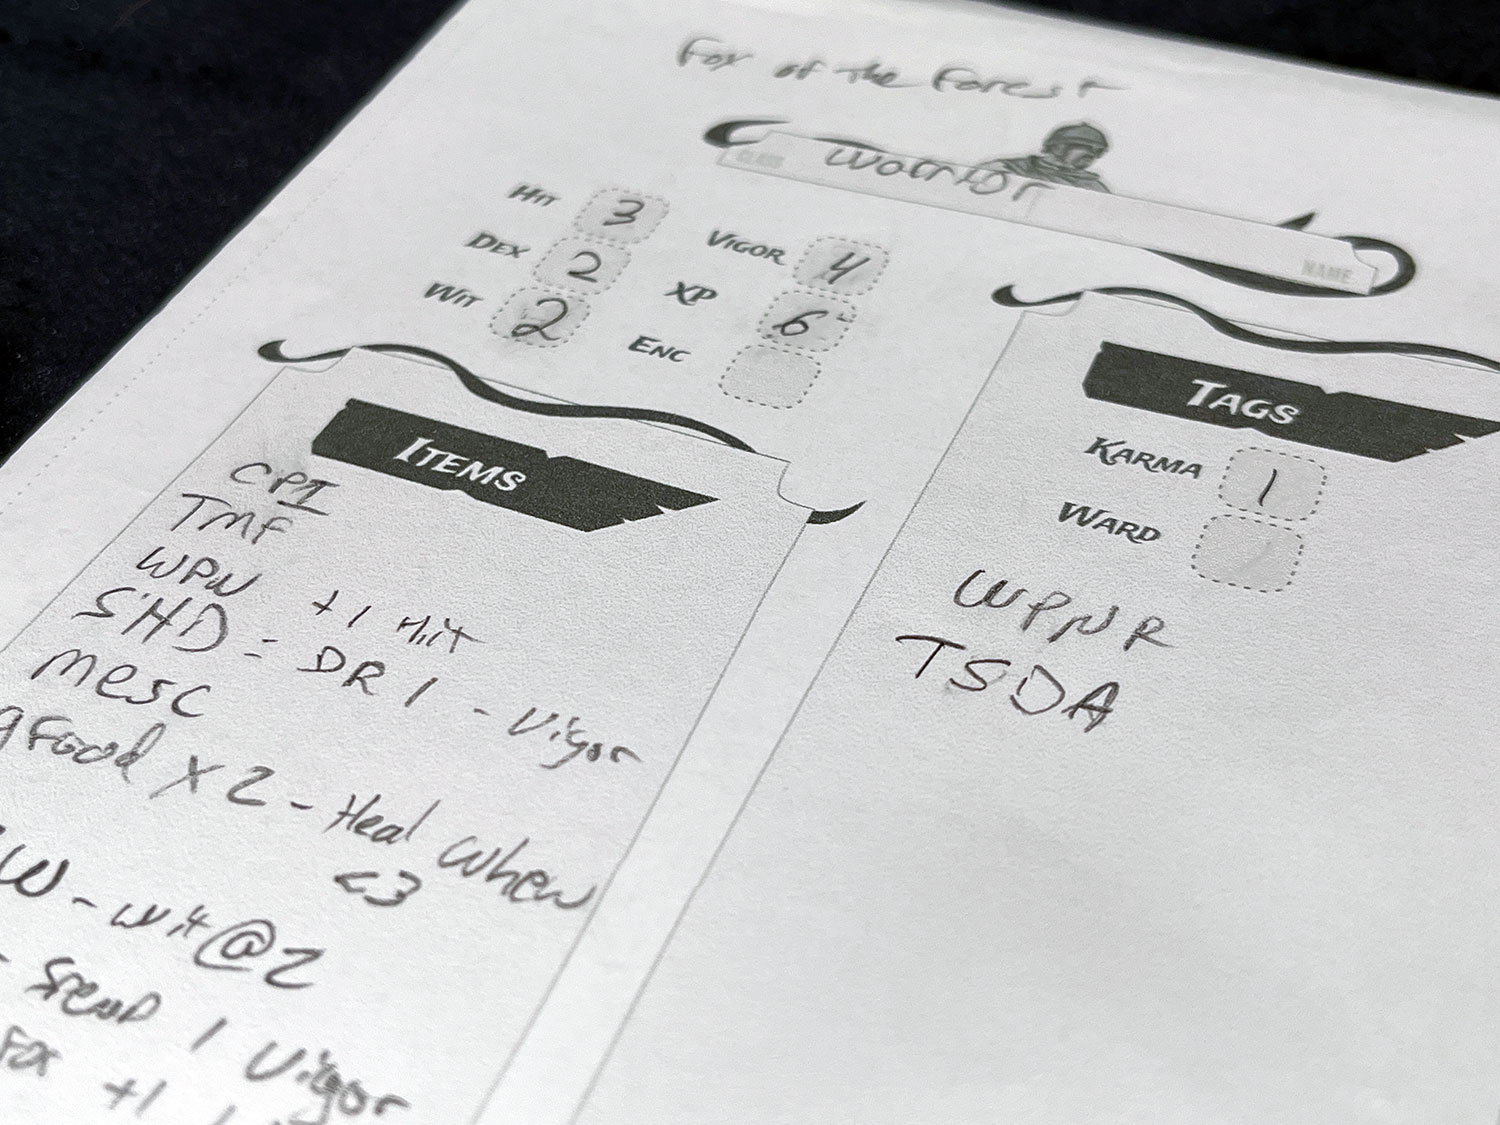 Fox of the Forest
CLASS Warrior
NAME
HIT 3 VIGOR 4
DEX 2 XP 6
WIT 2 ENC
ITEMS
CPI
TMF
WPN +1 Hit
SHD = DR 1 - Vigor
MESC
Food x 2 - Heal when
<3
W - Wit @ 2
- Spend 1 Vigor
Fox +1
TAGS
KARMA 1
WARD
WPNR
TSDA